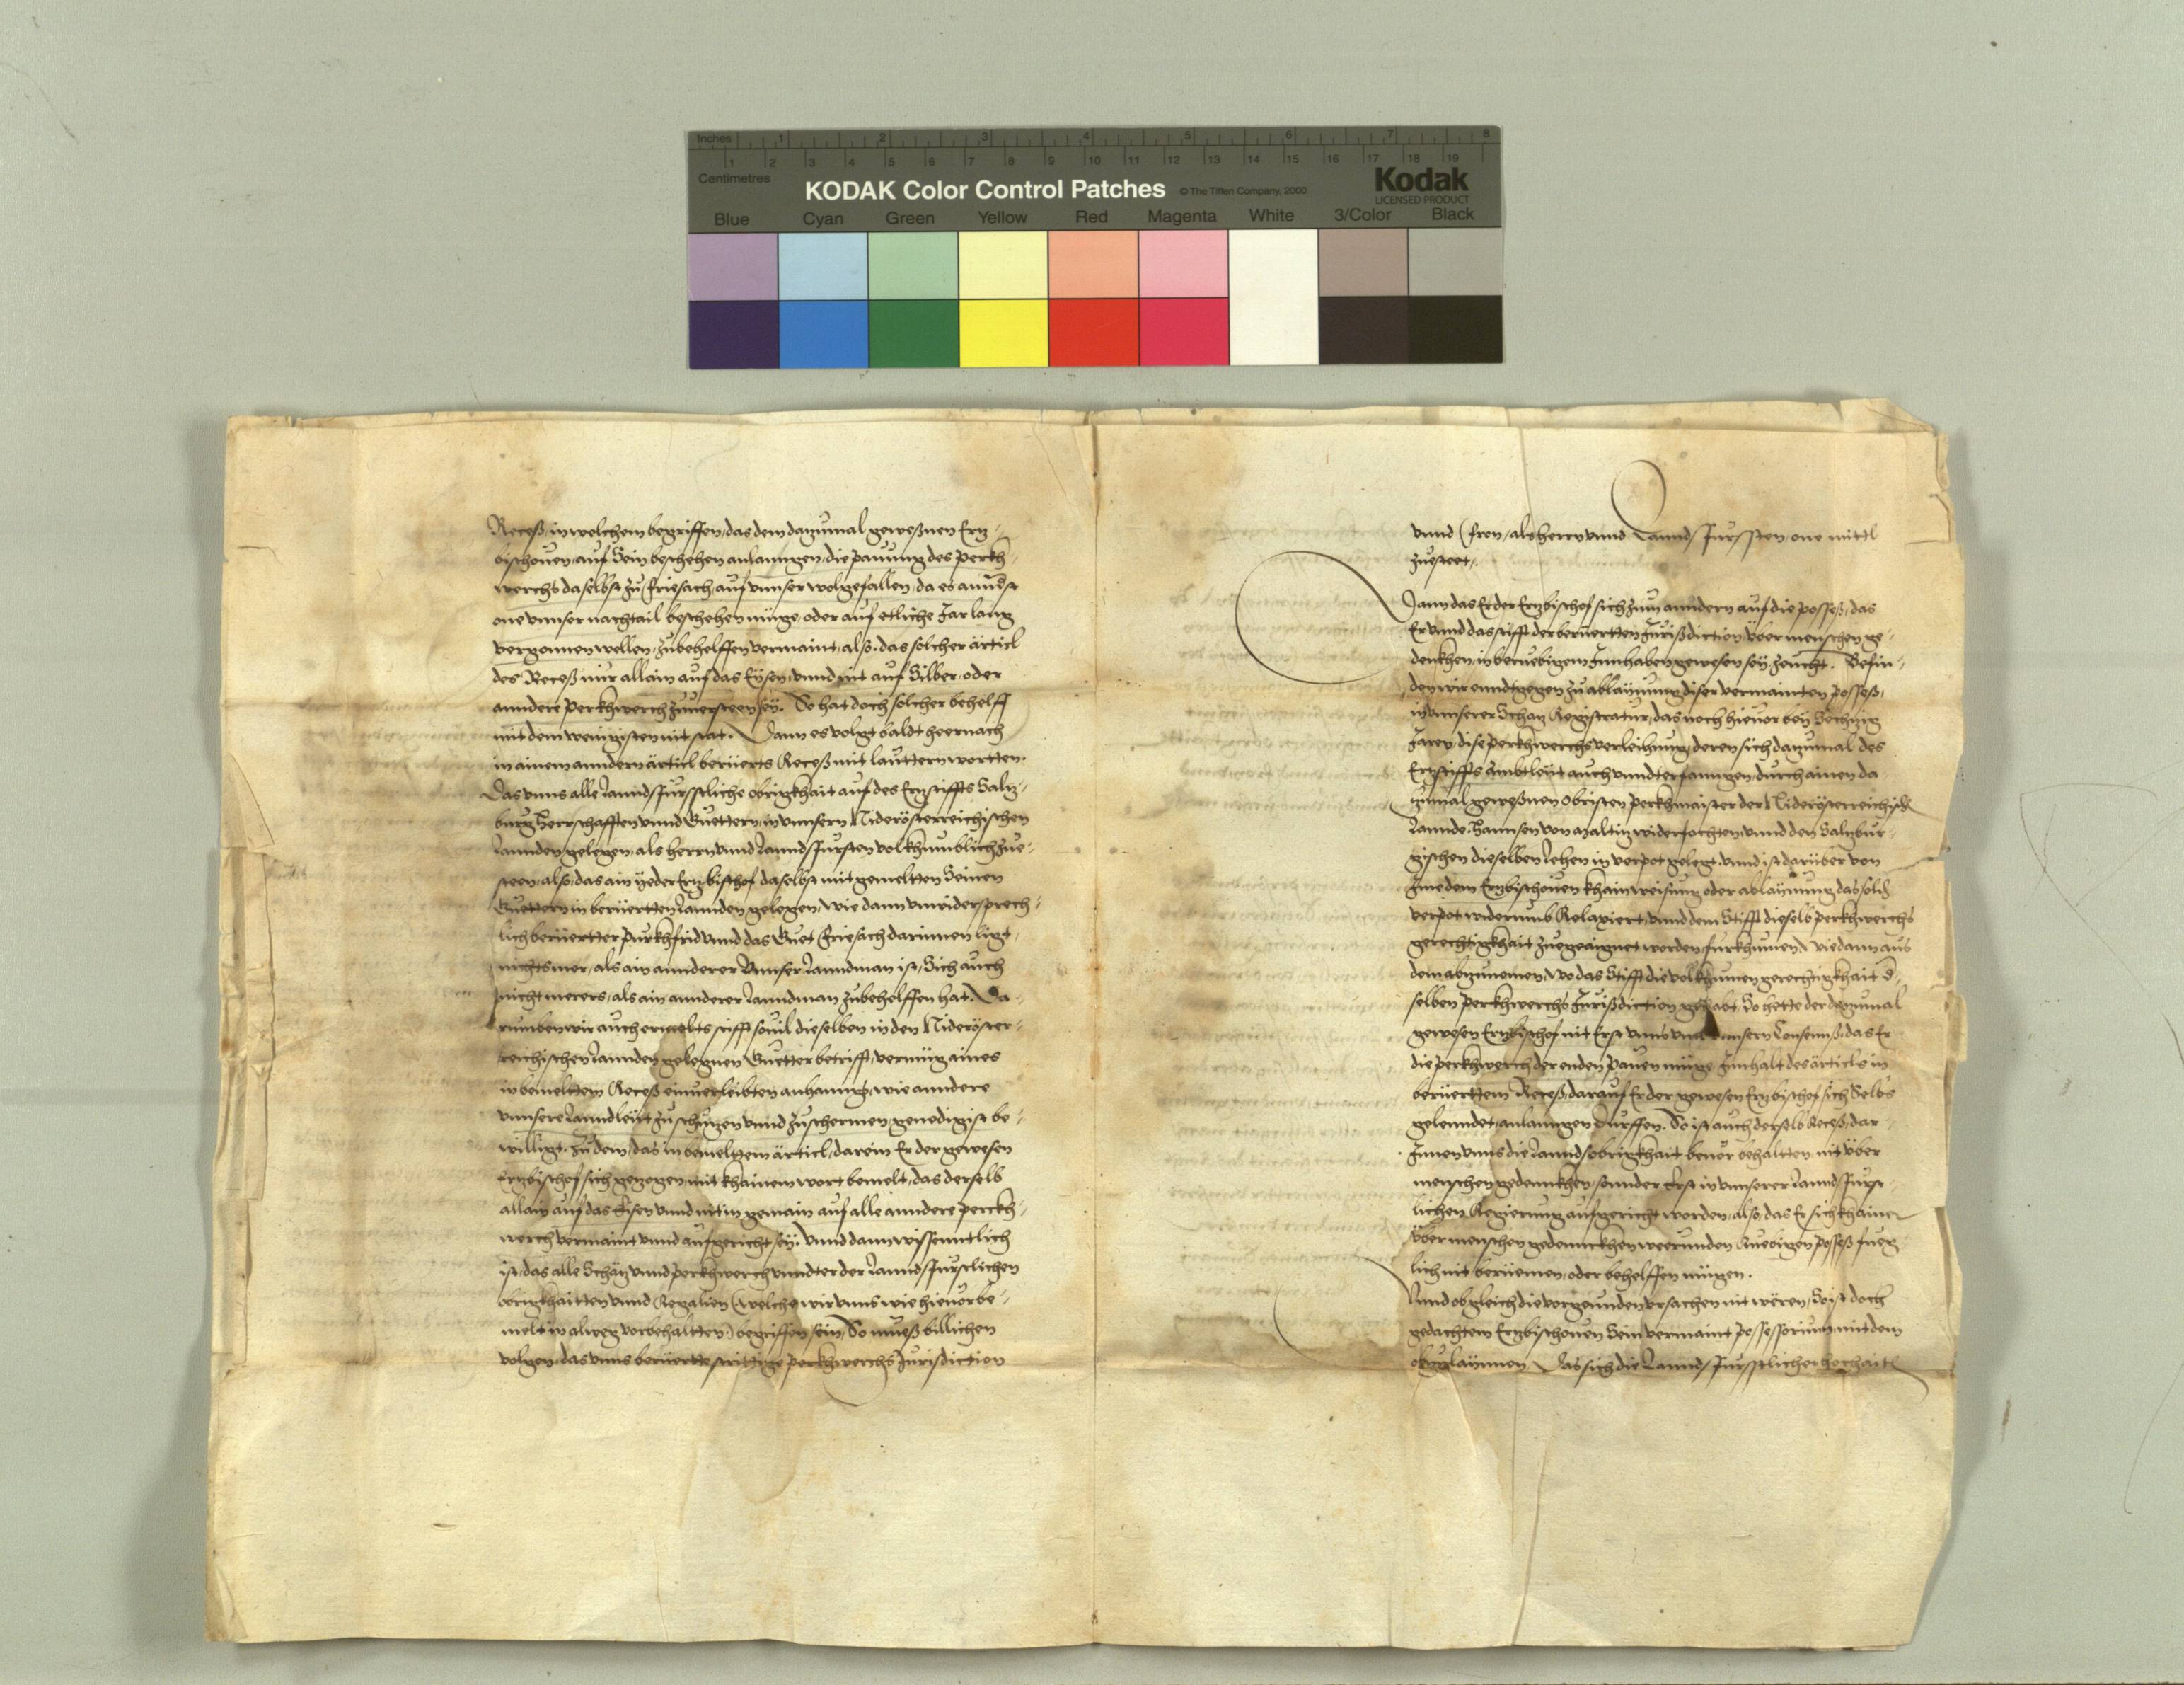 Inches 1 2 3 4 5 6 7 8
1 2 3 4 5 6 7 8 9 10 11 12 13 14 15 16 17 18 19
Centimetres
KODAK Color Control Patches © The Tiffen Company, 2000
Kodak
LICENSED PRODUCT
Blue Cyan Green Yellow Red Magenta White 3/Color Black
Receß, in welchem begriffen, das dem dazumal geweßnen Ertz-
bischouen, auf Sein beschehen anlanngen, die pauung des Perkh-
werchs daselbst zu Friesach, auf vnnser wolgefallen, da es annderst
one vnnser nachtail beschehen müge, oder auf etliche Jar lang
vergonnen wellen, zubehelffen vermaint, alß, das solcher articl
des Receß nur allain auf das Eysen, vnnd nit auf Silber, oder
anndere Perkhwerch zuuersteen sey. So hat doch solcher behelff
mit dem wenigisten nit stat. Dann es volgt baldt heernach
in ainem anndern articl berüerts Receß mit lauttern wortten.
Das vnns alle Lanndsfürstliche obrigkhait auf des Ertzstiffts Saltz-
burg Herrschafften vnnd Guettern, in vnnsern Niderösterreichischen
Lannden gelegen, als Herrn vnnd Lanndsfürsten volkhumblich zue-
steen, also, das ain yeder Ertzbischof daselbst mit gemeltten Seinen
Guettern in berüertten Lannden gelegen, wie dann vnwidersprech-
lich berüertter Purkhfrid vnnd das Guet Friesach darinnen ligt,
nichts mer, als ain annderer Vnnser Lanndman ist, Sich auch
nicht merers, als ain annderer Lanndman zubehelffen hat. Da-
rumben wir auch ermelts stifft souil dieselben in den Nideröster-
reichischen Lannden gelegnen Guetter betrifft, vermüg aines
in bemeltem Receß einuerleibten anhanngs, wie anndere
vnnsere Lanndleüt zu schutzen vnnd zu schermen genedigist be-
willigt. Zu dem, das in bemeltem articl, darein Er der gewesen
Ertzbischof sich gezogen, mit khainem wort bemelt, das derselb
allain auf das Eisen vnnd nit in gemain auf alle anndere perckh-
werch vermaint vnnd aufgericht sey. Vnnd dann wissenntlich
ist, das alle Schätz vnnd perkhwerch vnndter der Lanndsfürstlichen
obrigkhaitten vnnd Regalien (welche wir vnns wie hieuor be-
melt in alweg vorbehaltten) begriffen sein, So mueß billichen
volgen, das vnns berüertte strittige perkhwerchs Jurisdiction
vnnd Fron, als Herrn vnnd Lanndsfürsten, one mittl
zuesteet.
Dann das Er der Ertzbischof sich zum anndern auf die posseß, das
Er vnnd das stifft der berüertten Jurisdiction über menschen ge-
denkhen, in beruebigem Innhaben gewesen sey, zeucht. Befin-
den wir enndtgegen zu ablaynung diser vermainten posseß,
in vnnserer Schatz Registratur, das noch hieuor bey Sechtzig
Jaren dise perkhwerchs verleihung, deren sich dazumal des
Ertzstiffts Ambtleüt auch vnndterfanngen, durch ainen da
zumal geweßnen Obristen Perkhmaister der Niderösterreichischen
Lannde, Hannsen von Maltitz widerfochten, vnnd den Saltzbur-
gischen dieselben Lehen in verpot gelegt, vnnd ist darüber von
Ime dem Ertzbischouen khain weisung oder ablaynung, das solch
verpot widerumb Relaxiert, vnnd dem Stifft dieselb perkhwerchs
gerechtigkhait zuegeaignet worden, fürkhumen, Wie dann aus
dem abzunemen, Wo das Stifft die volkhumen gerechtigkhait der-
selben perkhwerchs Jurisdiction gehabt, So hette der dazumal
gewesen Ertzbischof nit Erst vnns vmb vnnsern Consenß, das Er
die perkhwerch der enden pauen müge, Innhalt des articls in
berüerttem Receß, darauf Er der gewesen Ertzbischof sich Selbs
gelenndet, anlanngen dürffen. So ist auch derselb Receß, dar-
Innen vnns die Lanndsobrigkhait beuor behaltten, nit über
menschen gedennkhen, sonnder Erst in vnnserer Lanndsfürst-
lichen Regierung aufgericht worden, also, das Er sich khainer
über menschen gedennckhen weerunden Ruebigen posseß fueg-
lich nit berüemen, oder behelffen mügen.
Vnnd obgleich die vorgeunden vrsachen nit wären, So ist doch
gedachtem Ertzbischouen Sein vermaint possessorium mit dem
abzulaynnen, Das sich die Lanndsfürstlicher Hochait